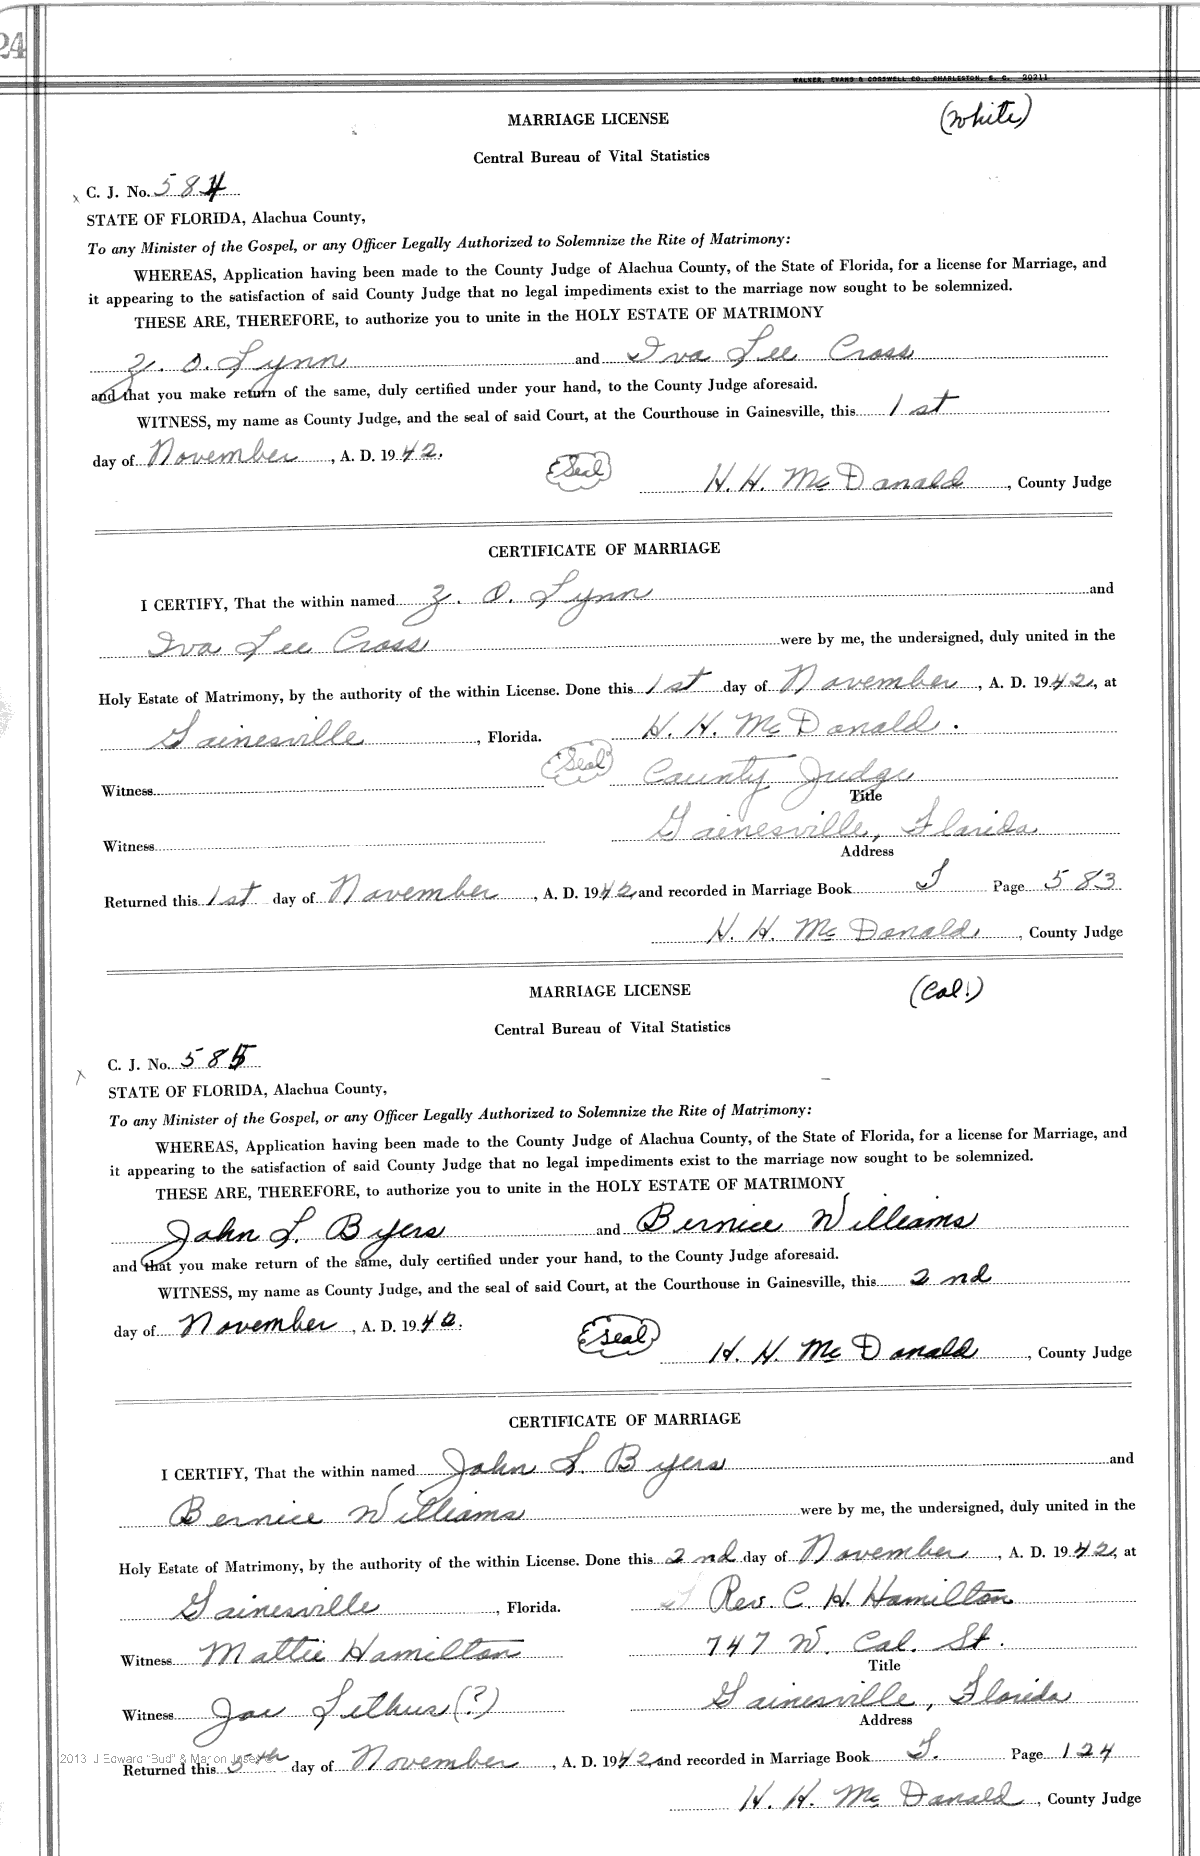 24
WALKER, EVANS & COGSWELL CO., CHARLESTON, S. C. 20211
MARRIAGE LICENSE (White)
Central Bureau of Vital Statistics
x C. J. No. 584
STATE OF FLORIDA, Alachua County,
To any Minister of the Gospel, or any Officer Legally Authorized to Solemnize the Rite of Matrimony:
WHEREAS, Application having been made to the County Judge of Alachua County, of the State of Florida, for a license for Marriage, and
it appearing to the satisfaction of said County Judge that no legal impediments exist to the marriage now sought to be solemnized.
THESE ARE, THEREFORE, to authorize you to unite in the HOLY ESTATE OF MATRIMONY
Z. O. Lynn and Iva Lee Cross
and that you make return of the same, duly certified under your hand, to the County Judge aforesaid.
WITNESS, my name as County Judge, and the seal of said Court, at the Courthouse in Gainesville, this 1st
day of November, A. D. 1942.
(Seal) H. H. McDonald, County Judge
CERTIFICATE OF MARRIAGE
I CERTIFY, That the within named Z. O. Lynn and
Iva Lee Cross were by me, the undersigned, duly united in the
Holy Estate of Matrimony, by the authority of the within License. Done this 1st day of November, A. D. 1942, at
Gainesville, Florida. H. H. McDonald.
Witness (Seal) County Judge
Title
Witness Gainesville, Florida
Address
Returned this 1st day of November, A. D. 1942 and recorded in Marriage Book Page 583
H. H. McDonald, County Judge
MARRIAGE LICENSE (Col.)
Central Bureau of Vital Statistics
x C. J. No. 585
STATE OF FLORIDA, Alachua County,
To any Minister of the Gospel, or any Officer Legally Authorized to Solemnize the Rite of Matrimony:
WHEREAS, Application having been made to the County Judge of Alachua County, of the State of Florida, for a license for Marriage, and
it appearing to the satisfaction of said County Judge that no legal impediments exist to the marriage now sought to be solemnized.
THESE ARE, THEREFORE, to authorize you to unite in the HOLY ESTATE OF MATRIMONY
John L. Byers and Bernice Williams
and that you make return of the same, duly certified under your hand, to the County Judge aforesaid.
WITNESS, my name as County Judge, and the seal of said Court, at the Courthouse in Gainesville, this 2nd
day of November, A. D. 1942.
(Seal) H. H. McDonald, County Judge
CERTIFICATE OF MARRIAGE
I CERTIFY, That the within named John L. Byers and
Bernice Williams were by me, the undersigned, duly united in the
Holy Estate of Matrimony, by the authority of the within License. Done this 2nd day of November, A. D. 1942, at
Gainesville, Florida. Rev. C. H. Hamilton
Witness Mattie Hamilton 747 W. Col. St.
Title
Witness Joe (?) Gainesville, Florida
Address
2013 J Edward "Bud" & Marion
Returned this 5th day of November, A. D. 1942 and recorded in Marriage Book Page 124
H. H. McDonald, County Judge